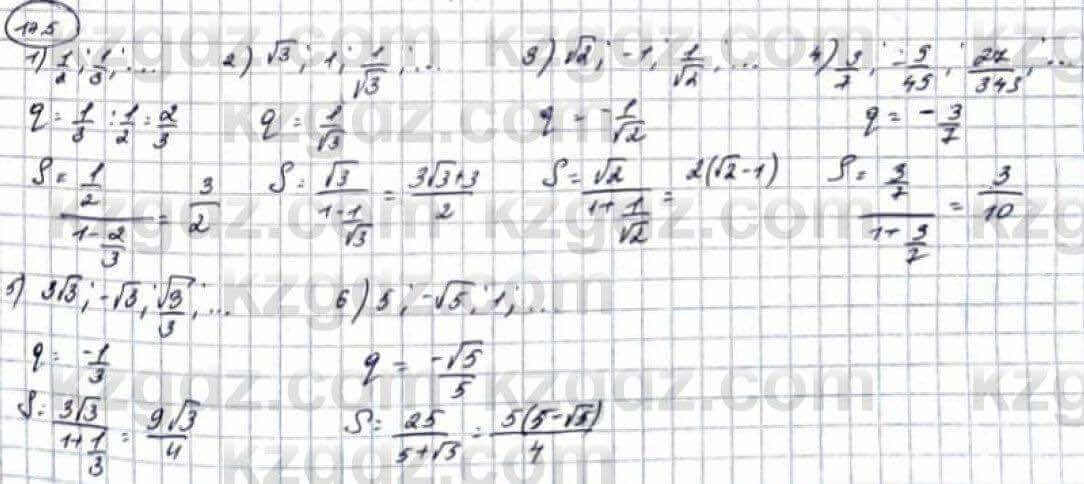 175
1) 1/2; 1/3; ... 2) √3; 1; 1/√3; ... 3) √2; -1; 1/√2; ... 4) 3/7; -9/49; 27/343; ...
q = 1/3 : 1/2 = 2/3 q = 1/√3 q = -1/√2 q = -3/7
S = (1/2)/(1-2/3) = 3/2 S = √3/(1-1/√3) = (3√3+3)/2 S = √2/(1+1/√2) = 2(√2-1) S = (3/7)/(1+3/7) = 3/10
5) 3√3; -√3; √3/3; ... 6) 5; -√5; 1; ...
q = -1/3 q = -√5/5
S = 3√3/(1+1/3) = 9√3/4 S = 25/(5+√5) = 5(5-√5)/4
kzgdz.com